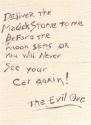 Deliver the
Magick Stone to me
Before the
moon sets or
You will Never
See your
Cat again!
The Evil One